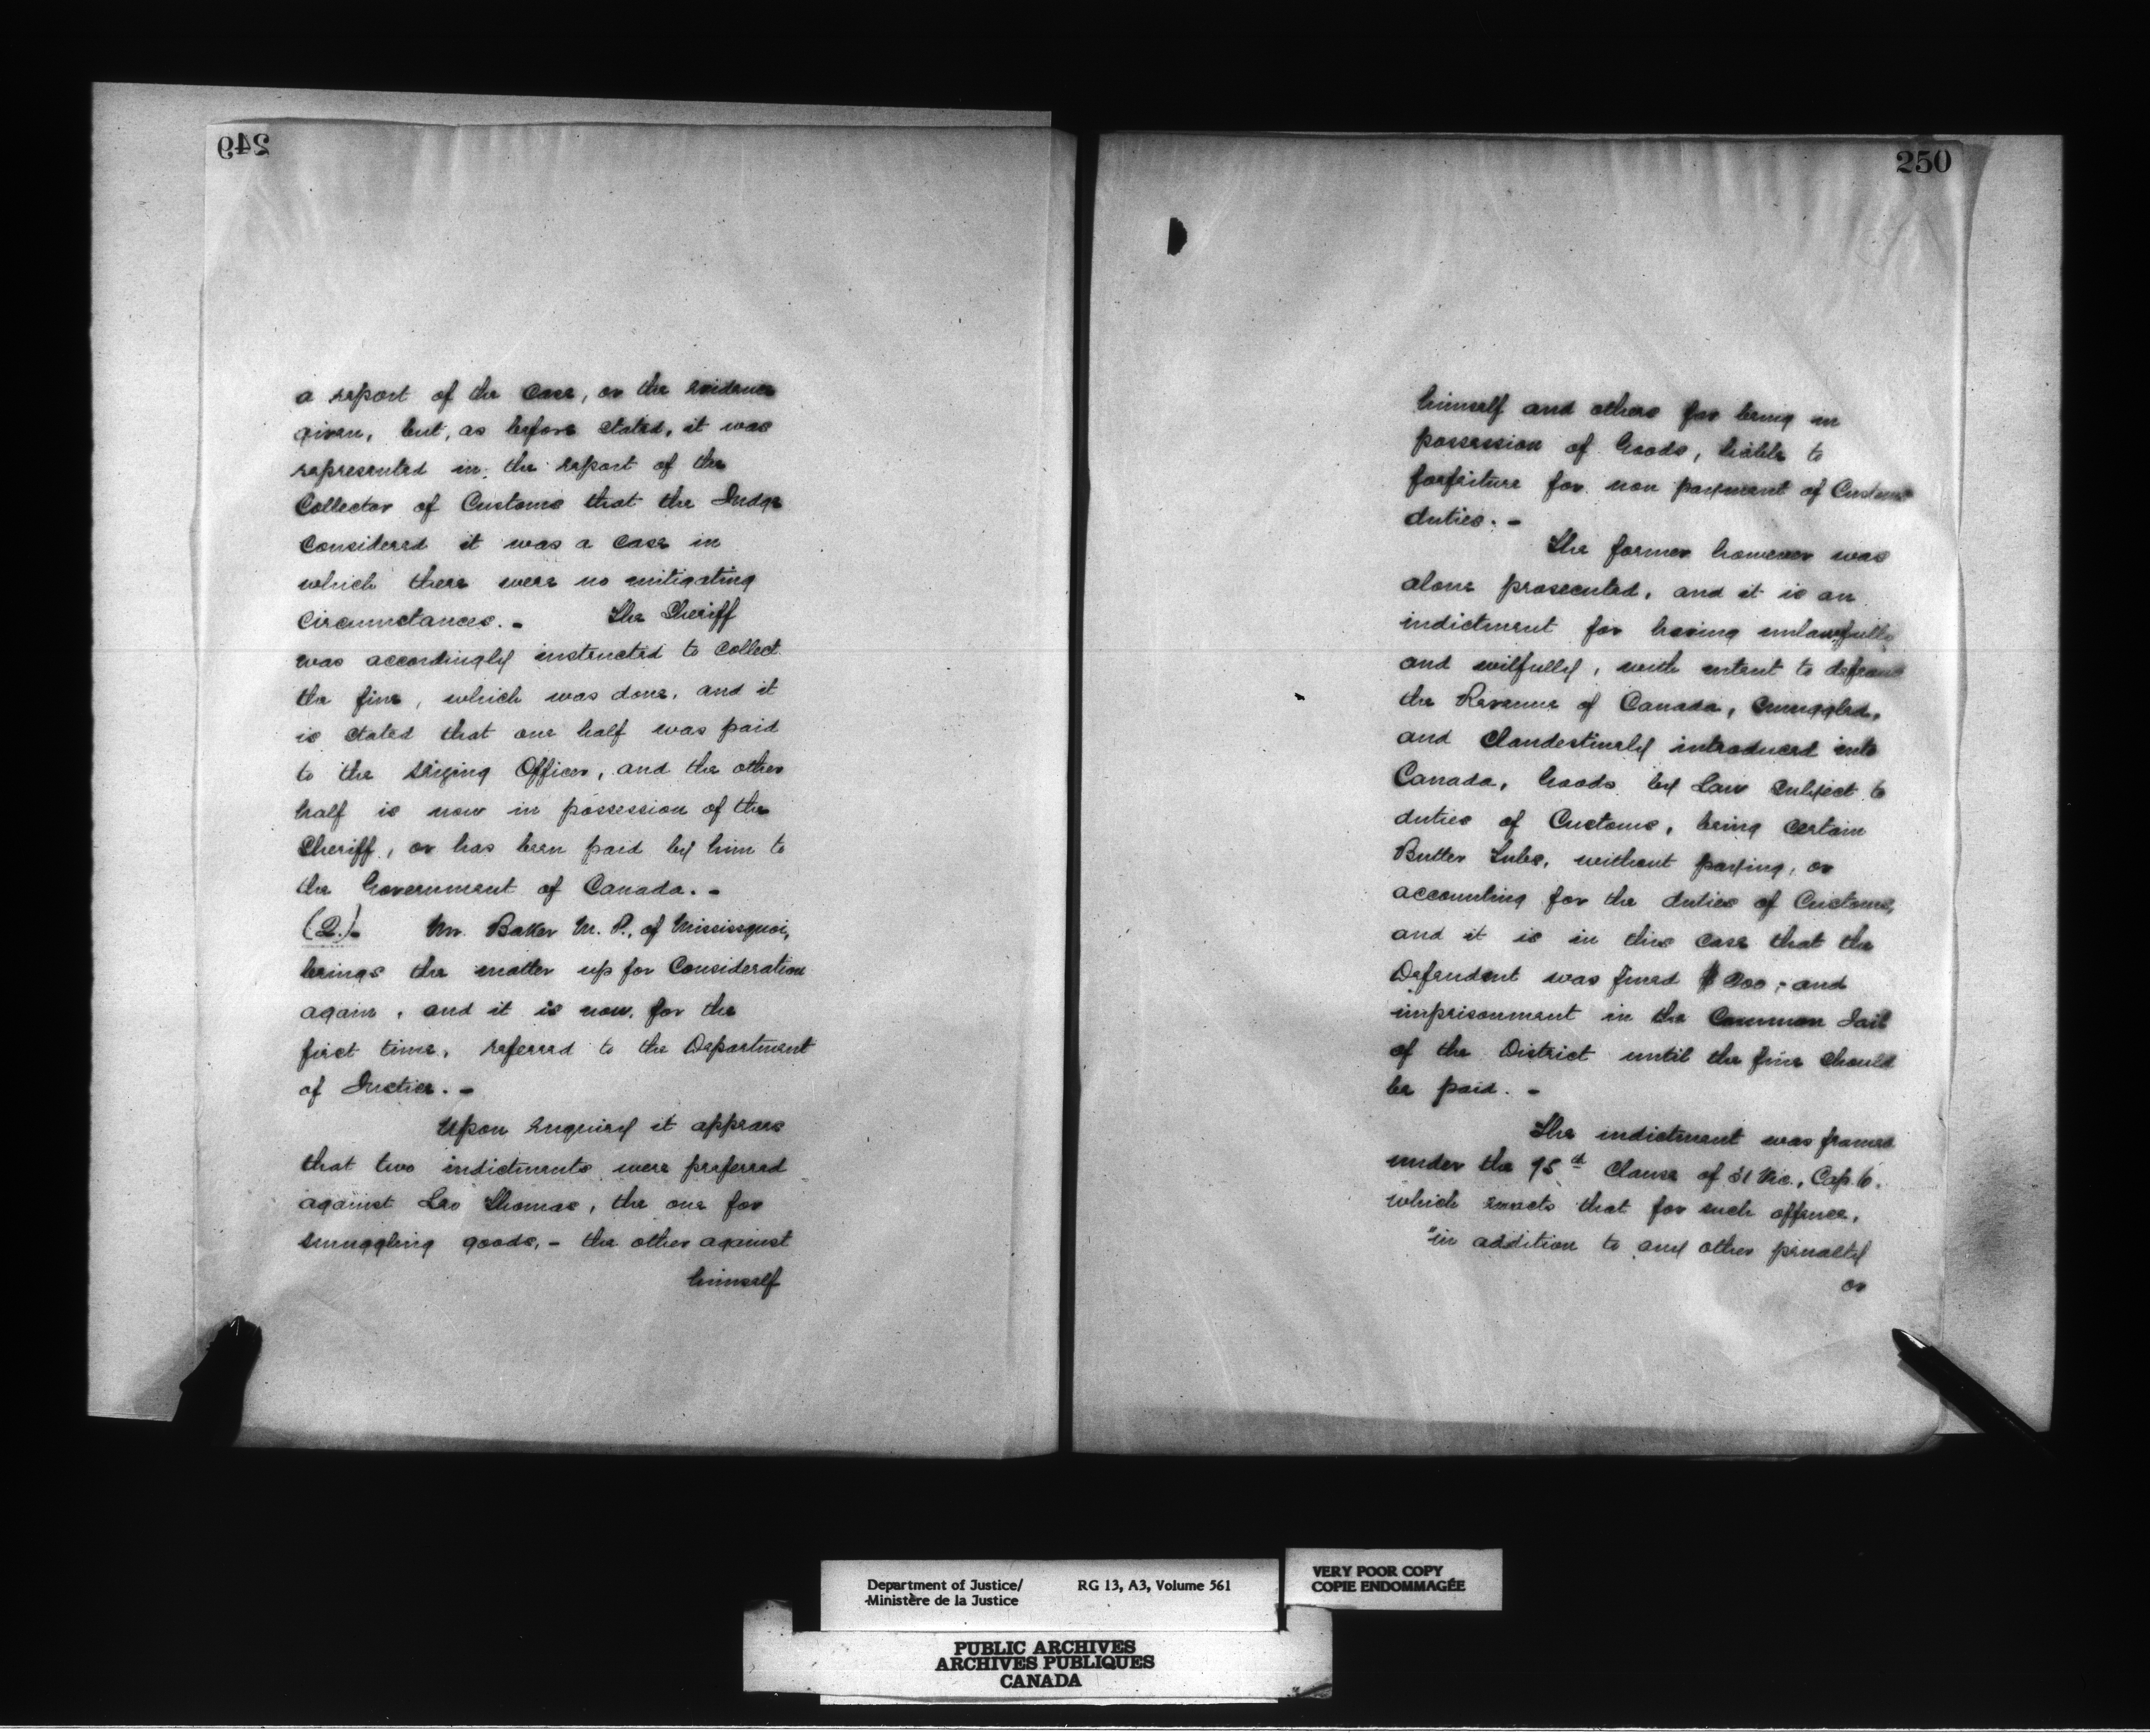 249
a report of the case, or the evidence
given, but, as before stated, it was
represented in the report of the
Collector of Customs that the Judge
Considered it was a case in
which there were no mitigating
Circumstances. - The Sheriff
was accordingly instructed to Collect
the fine, which was done, and it
is stated that one half was paid
to the seizing Officer, and the other
half is now in possession of the
Sheriff, or has been paid by him to
the Government of Canada. -
(2.) - Mr. Baker M. P., of Mississquoi,
brings the matter up for Consideration
again, and it is now, for the
first time, referred to the Department
of Justice. -
Upon enquiry it appears
that two indictments were preferred
against Leo Thomas, the one for
smuggling goods, - the other against
himself
250
himself and others for being in
possession of Goods, liable to
forfeiture for non payment of Customs
duties. -
The former however was
alone prosecuted, and it is an
indictment for having unlawfully
and wilfully, with intent to defraud
the Revenue of Canada, smuggled,
and Clandestinely introduced into
Canada, Goods by Law subject to
duties of Customs, being certain
Butter Tubs, without paying, or
accounting for the duties of Customs,
and it is in this case that the
Defendent was fined $200, and
imprisonment in the Common Jail
of the District until the fine should
be paid. -
The indictment was framed
under the 95th Clause of 31 Vic., Cap. 6.
which enacts that for such offence,
"in addition to any other penalty
or
Department of Justice/ RG 13, A3, Volume 561
Ministère de la Justice
VERY POOR COPY
COPIE ENDOMMAGÉE
PUBLIC ARCHIVES
ARCHIVES PUBLIQUES
CANADA